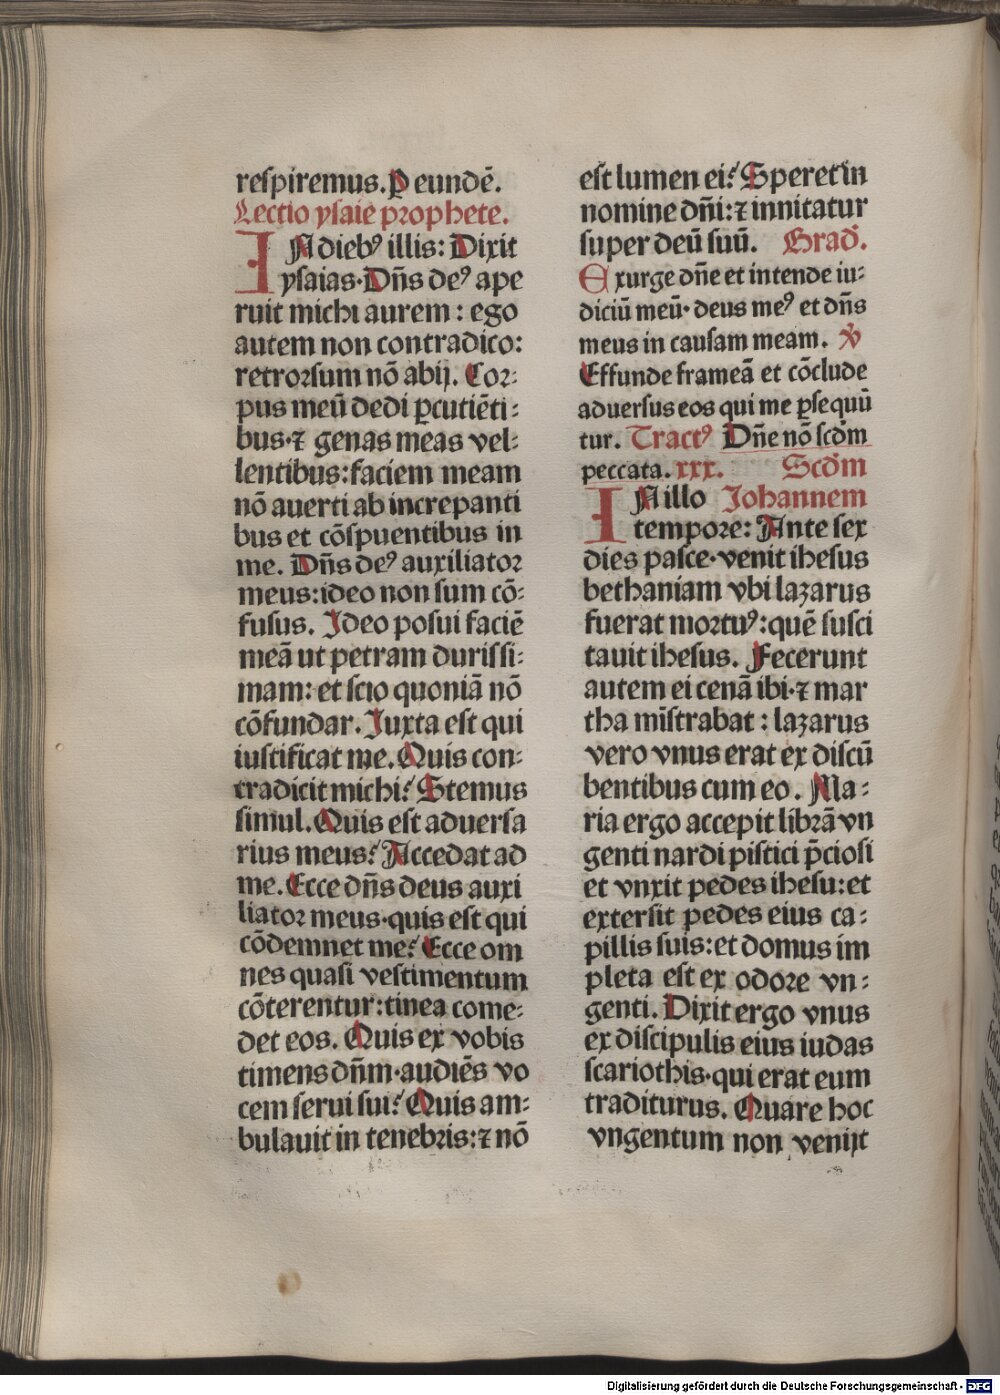 respiremus. ꝑ eundē.
Lectio ysaie prophete.
IN diebꝰ illis: Dixit
ysaias·Dn̄s deꝰ ape
ruit michi aurem: ego
autem non contradico:
retrorsum nō abij. Cor-
pus meū dedi ꝑcutiēti-
bus·⁊ genas meas vel-
lentibus: faciem meam
nō auerti ab increpanti
bus et cōspuentibus in
me. Dn̄s deꝰ auxiliator
meus: ideo non sum cō-
fusus. Ideo posui faciē
meā ut petram durissi-
mam: et scio quoniā nō
cōfundar. Iuxta est qui
iustificat me. Quis con-
tradicit michi? Stemus
simul. Quis est aduersa
rius meus? Accedat ad
me. Ecce dn̄s deus auxi
liator meus·quis est qui
cōdemnet me? Ecce om
nes quasi vestimentum
cōterentur: tinea come-
det eos. Quis ex vobis
timens dn̄m·audiēs vo
cem serui sui? Quis am-
bulauit in tenebris: ⁊ nō
est lumen ei? Speret in
nomine dn̄i: ⁊ innitatur
super deū suū. Grad̄.
Exurge dn̄e et intende iu-
diciū meū· deus meꝰ et dn̄s
meus in causam meam. v̄
Effunde frameā et cōclude
aduersus eos qui me ꝑsequū
tur. Tractꝰ Dn̄e nō scd̄m
peccata. xxx. Scd̄m
IN illo Johannem
tempore: Ante sex
dies pasce·venit ihesus
bethaniam vbi lazarus
fuerat mortuꝰ: quē susci
tauit ihesus. Fecerunt
autem ei cenā ibi·⁊ mar
tha mīstrabat: lazarus
vero vnus erat ex discū
bentibus cum eo. Ma-
ria ergo accepit librā vn
genti nardi pistici p̄ciosi
et vnxit pedes ihesu: et
extersit pedes eius ca-
pillis suis: et domus im
pleta est ex odore vn-
genti. Dixit ergo vnus
ex discipulis eius iudas
scariothis·qui erat eum
traditurus. Quare hoc
vngentum non venijt
Digitalisierung gefördert durch die Deutsche Forschungsgemeinschaft - DFG